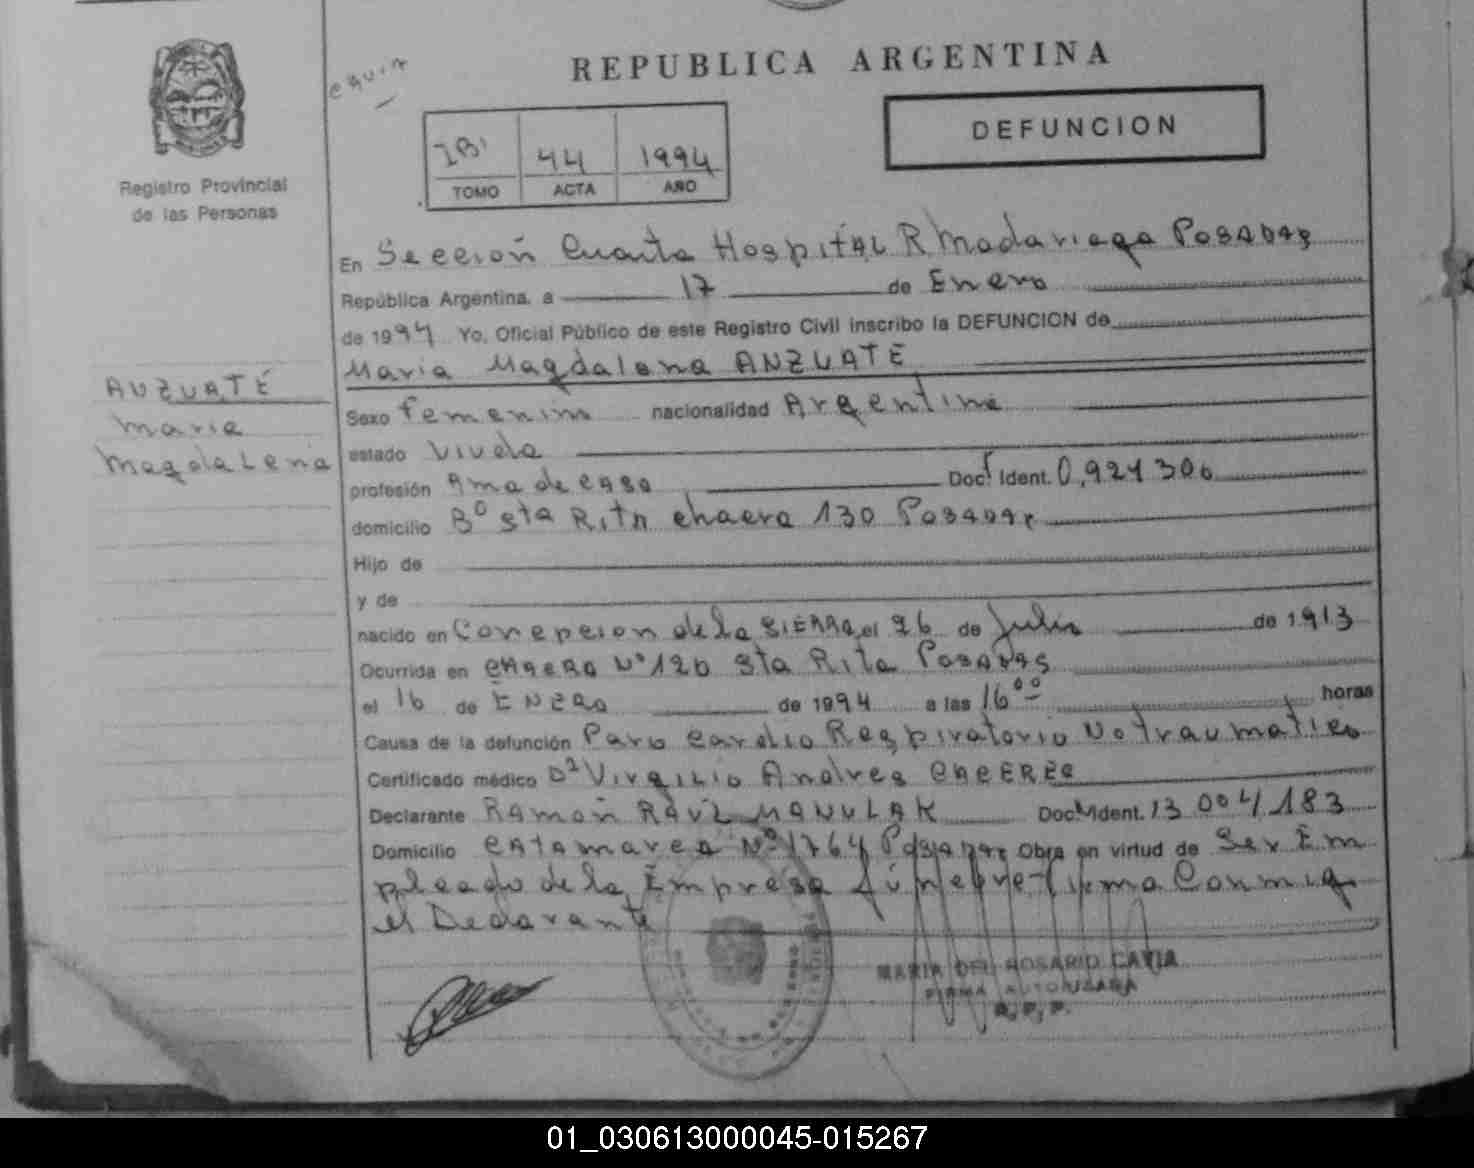 REPUBLICA ARGENTINA
DEFUNCION
44 1994
TOMO ACTA AÑO
Registro Provincial
de las Personas
En Sección Cuarta Hospital R Madariaga Posadas
República Argentina, a 17 de Enero
de 1994 Yo, Oficial Público de este Registro Civil inscribo la DEFUNCION de
Maria Magdalena ANZUATE
ANZUATE
Maria
Magdalena
Sexo Femenino nacionalidad Argentina
estado Viuda
profesión Ama de casa Doc. Ident. 0,924 306
domicilio Bº Sta Rita chacra 130 Posadas
Hijo de
y de
nacido en Concepcion de la SIERRA el 26 de Julio de 1913
Ocurrida en chacra Nº 120 Sta Rita Posadas
el 16 de ENERO de 1994 a las 16⁰⁰ horas
Causa de la defunción Paro Cardio Respiratorio No traumatico
Certificado médico Dr Virgilio Andres CACERES
Declarante Ramon RAUL MANULAK Doc. Ident. 13 004 183
Domicilio Catamarca Nº 1764 Posadas Obra en virtud de Ser Em
pleado de la Empresa fúnebre firma Conmigo
el Declarante
MARIA DEL ROSARIO CAVIA
FIRMA AUTORIZADA
R.P.P.
01_030613000045-015267